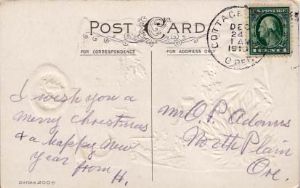 POST CARD
FOR CORRESPONDENCE
FOR ADDRESS ONLY
COTTAGE
DEC
24
1 AM
OREG
1 CENT 1
I wish you a
Merry Christmas
& a Happy New
Year from H.
Mr O. P. Adams
North Plain
Ore.